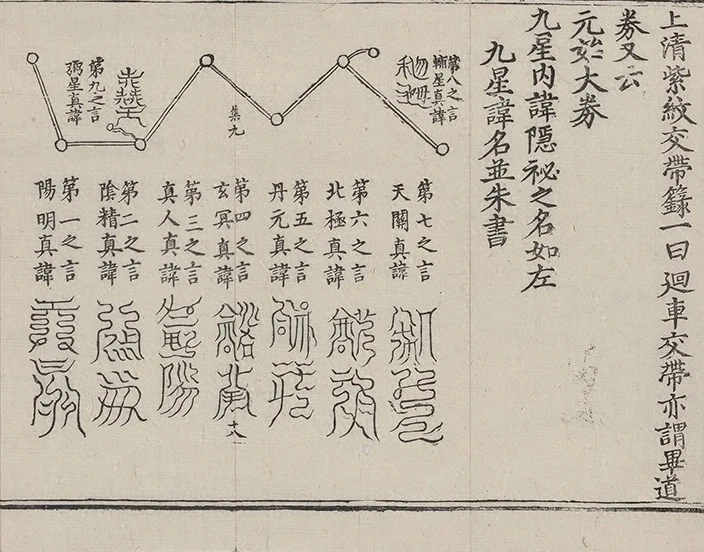 上清紫紋交帶籙一曰廻車交帶亦謂畢道
券又云
元始大券
九星內諱隱祕之名如左
九星諱名並朱書
第八之言
輔星真諱
集九
第九之言
弼星真諱
第七之言
天關真諱
第六之言
北極真諱
第五之言
丹元真諱
第四之言
玄冥真諱
十八
第三之言
真人真諱
第二之言
陰精真諱
第一之言
陽明真諱